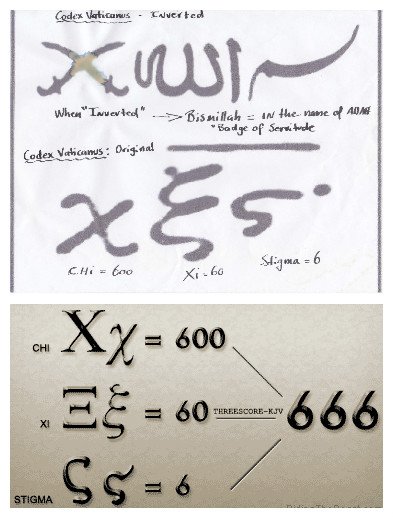 Codex Vaticanus - Inverted
بسم الله
When "Inverted" → Bismillah = IN the name of Allah
"Badge of Servitude
Codex Vaticanus: Original
χ ξ ϛ
CHi = 600 Xi = 60 Stigma = 6
CHI Χχ = 600
XI Ξξ = 60 THREESCORE-KJV 666
STIGMA Ϛϛ = 6